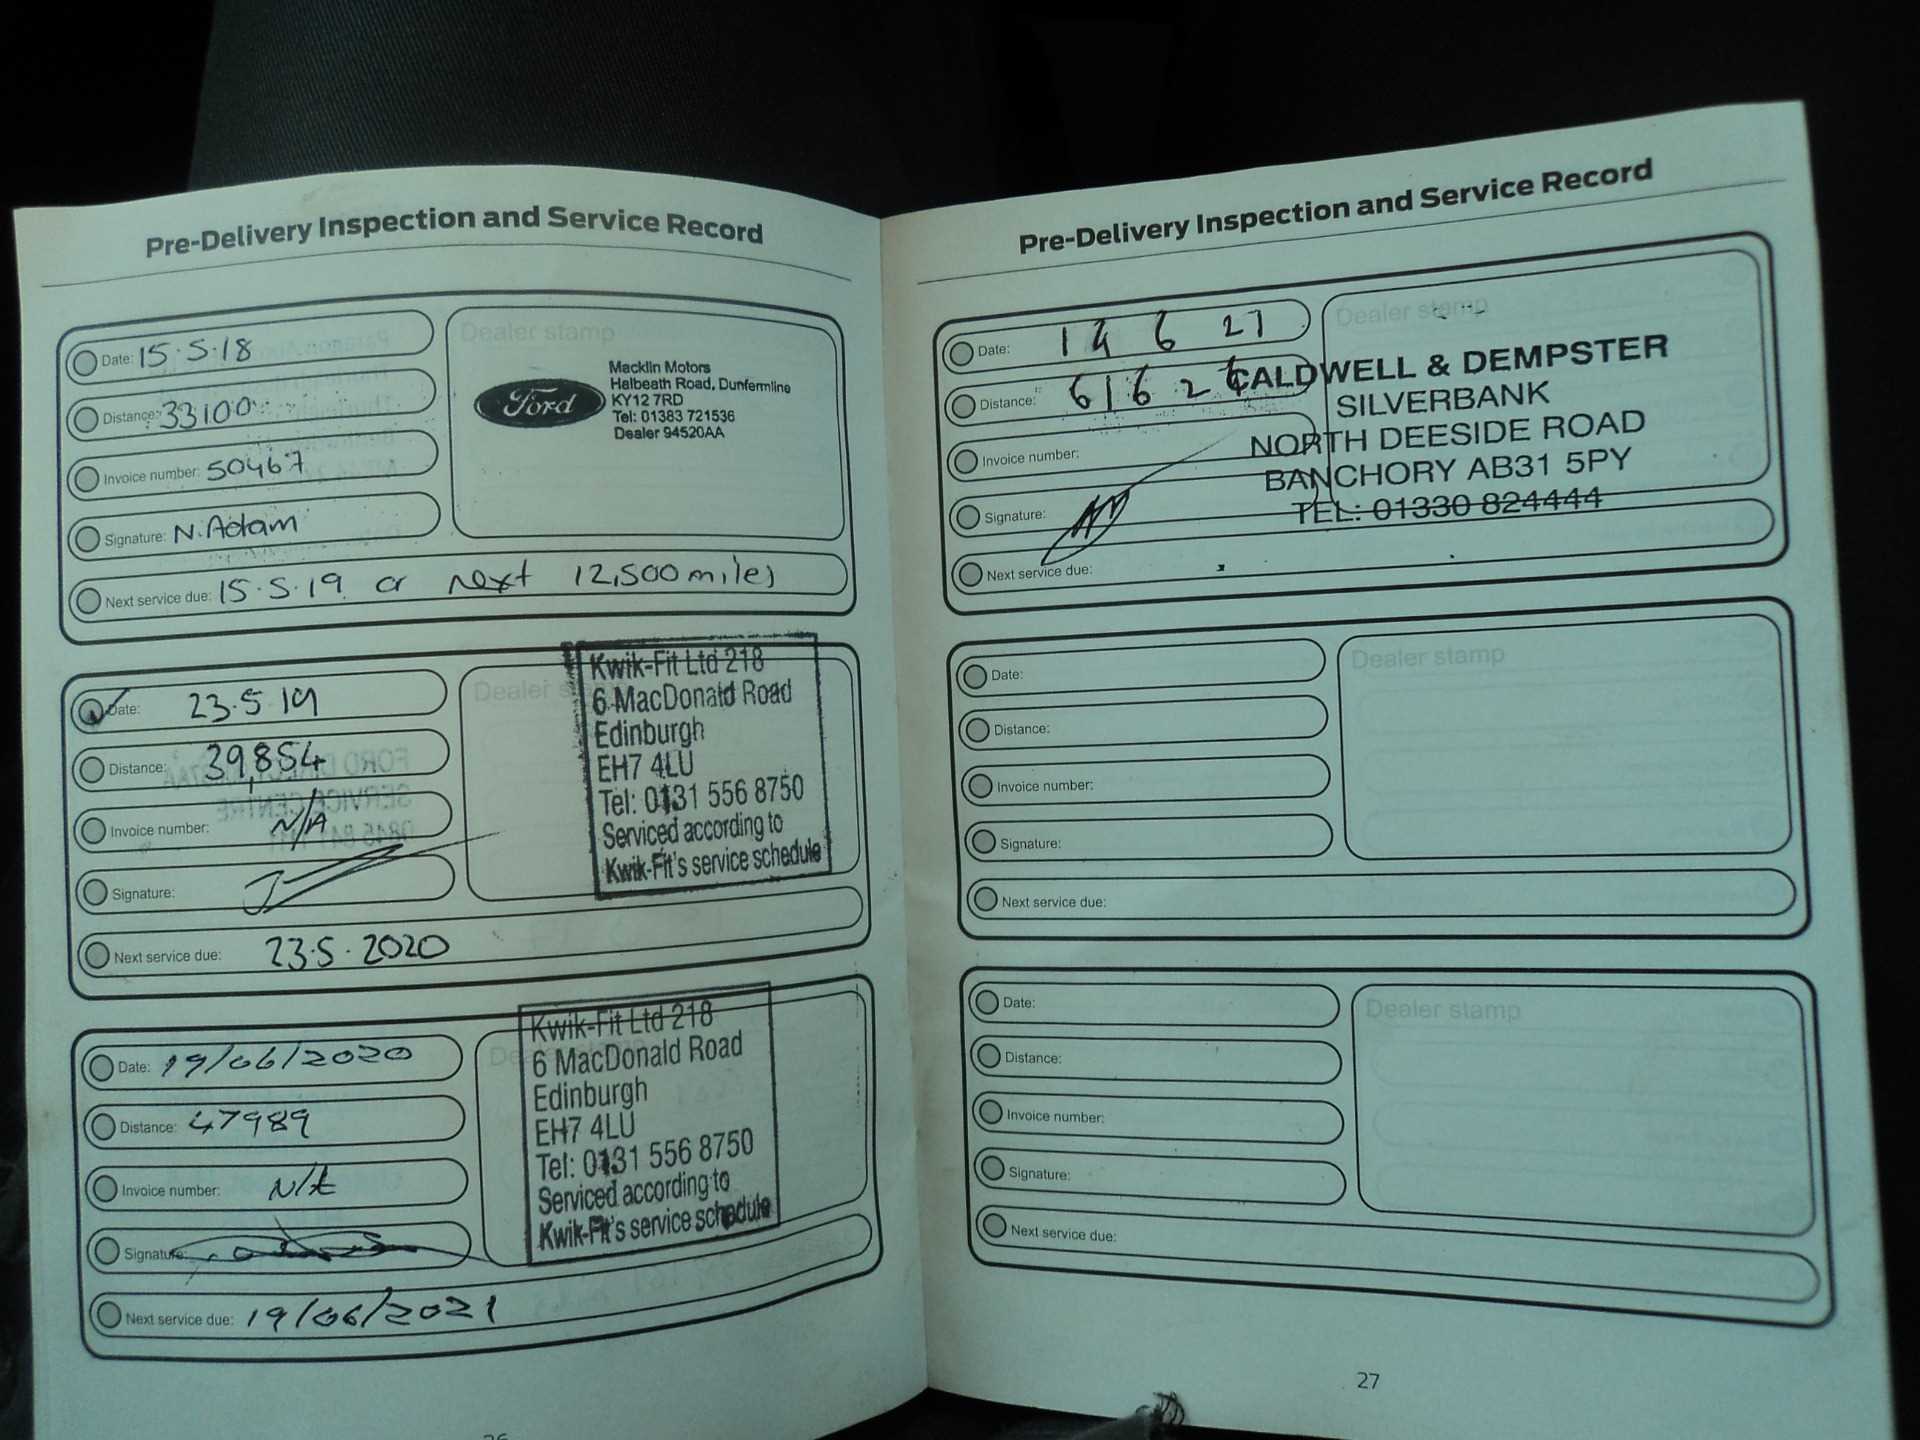 Pre-Delivery Inspection and Service Record
Date: 15.5.18
Distance: 33100
Invoice number: 50467
Signature: N.Adam
Next service due: 15.5.19 or next 12,500 miles
Dealer stamp
Ford
Macklin Motors
Halbeath Road, Dunfermline
KY12 7RD
Tel: 01383 721536
Dealer 94520AA
Date: 23.5.19
Distance: 39,854
Invoice number: N/A
Signature:
Next service due: 23.5.2020
Dealer stamp
Kwik-Fit Ltd 218
6 MacDonald Road
Edinburgh
EH7 4LU
Tel: 0131 556 8750
Serviced according to
Kwik-Fit's service schedule
Date: 19/06/2020
Distance: 47989
Invoice number: N/A
Signature:
Next service due: 19/06/2021
Kwik-Fit Ltd 218
6 MacDonald Road
Edinburgh
EH7 4LU
Tel: 0131 556 8750
Serviced according to
Kwik-Fit's service schedule
Pre-Delivery Inspection and Service Record
Date:
Distance:
Invoice number:
Signature:
Next service due:
Dealer stamp
CALDWELL & DEMPSTER
SILVERBANK
NORTH DEESIDE ROAD
BANCHORY AB31 5PY
TEL: 01330 824444
Date:
Distance:
Invoice number:
Signature:
Next service due:
Dealer stamp
Date:
Distance:
Invoice number:
Signature:
Next service due:
Dealer stamp
27